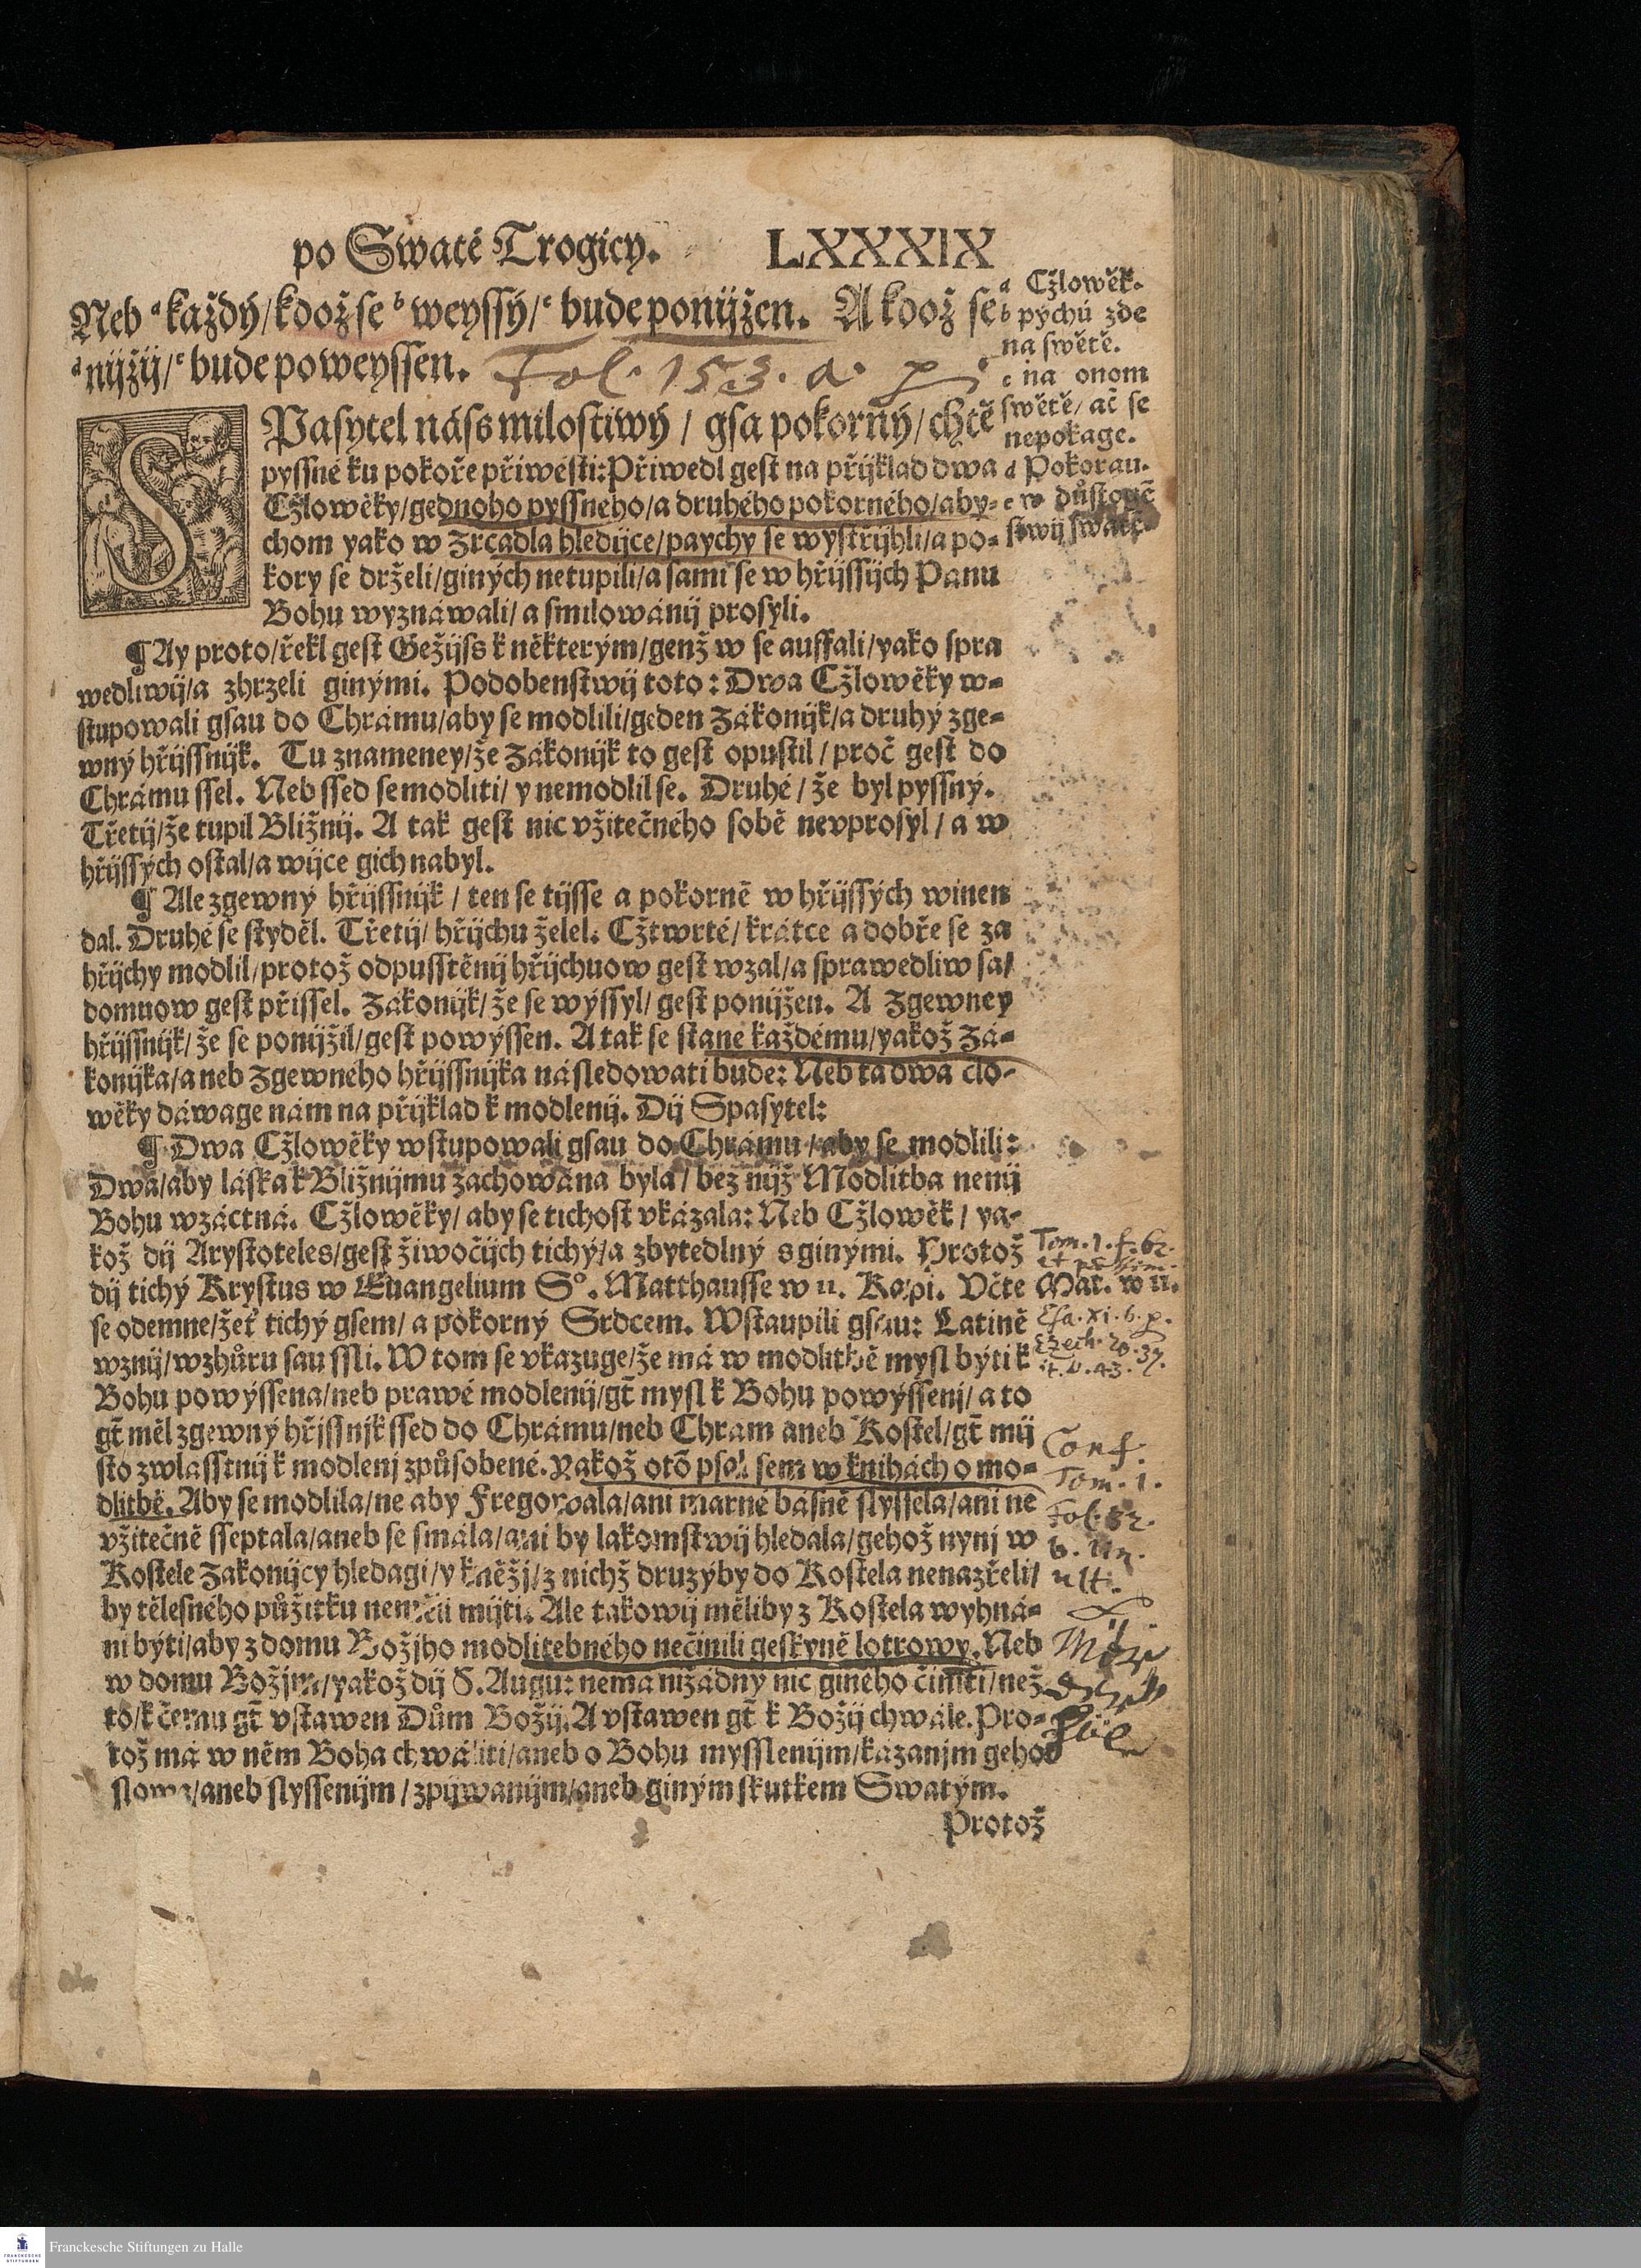 po Swaté Trogicy. LXXXIX
Neb a každý/kdož se b weyssý/c bude ponijžen. A kdož se
d nijžij/e bude poweyssen. Fol. 153. a. p
a Cžlowěk.
b pychú zde
na swětě.
c na onom
swětě/ ač se
nepokage.
d Pokorau.
e w důstogě
stwij swaté.
SPasytel náss milostiwý / gsa pokorný/ chtě
pyssné ku pokoře přiwésti: Přiwedl gest na přijklad dwa
Cžlowěky/gednoho pyssneho/a druhého pokorného/aby-
chom yako w Zrcadla hledijce/paychy se wystřijhli/a po-
kory se drželi/giných netupili/a sami se w hřijssých Panu
Bohu wyznáwali/ a smilowánij prosyli.
¶ Ay proto/řekl gest Gežijss k některým/genž w se auffali/yako spra
wedliwij/a zhrzeli ginými. Podobenstwij toto: Dwa Cžlowěky w-
stupowali gsau do Chrámu/aby se modlili/geden Zákonijk/a druhý zge-
wný hřijssnijk. Tu znameney/že Zákonijk to gest opustil/ proč gest do
Chrámu ssel. Neb ssed se modliti/ y nemodlil se. Druhé/ že byl pyssný.
Třetij/že tupil Bližnij. A tak gest nic vžitečného sobě nevprosyl/ a w
hřijssých ostal/a wijce gich nabyl.
¶ Ale zgewný hřijssnijk/ ten se tijsse a pokorně w hřijssých winen
dal. Druhé se styděl. Třetij/ hřijchu želel. Cžtwrté/ krátce a dobře se za
hřijchy modlil/protož odpusstěnij hřijchuow gest wzal/a sprawedliw sa/
domuow gest přissel. Zákonijk/ že se wýssyl/ gest ponijžen. A Zgewney
hřijssnijk/ že se ponijžil/gest powýssen. A tak se stane každému/yakož Zá-
konijka/a neb Zgewneho hřijssnijka následowati bude: Neb ta dwa člo-
wěky dáwage nám na přijklad k modlenij. Dij Spasytel:
¶ Dwa Cžlowěky wstupowali gsau do Chrámu/aby se modlili:
Dwa/aby láska k Bližnijmu zachowána byla/ bez nijž Modlitba nenij
Bohu wzáctná. Cžlowěky/ aby se tichost vkázala: Neb Cžlowěk/ ya-
kož dij Arystoteles/gest žiwočijch tichý/a zbytedlný s ginými. Protož
dij tichý Krystus w Euangelium So. Matthausse w 11. Kapi. Včte
se odemne/žeť tichý gsem/ a pokorný Srdcem. Wstaupili gsau: Latině
wznij/wzhůru sau ssli. W tom se vkazuge/že má w modlitbě mysl býti k
Bohu powýssena/neb prawé modlenij/gt mysl k Bohu powýssenj/ a to
gt měl zgewný hřjssnjk ssed do Chrámu/neb Chram aneb Kostel/gt mij
sto zwlásstnij k modlenj způsobené. Yakož otō psal sem w knihách o mo-
dlitbě. Aby se modlila/ne aby Fregowala/ani marné básně slyssela/ani ne
vžitečně sseptala/aneb se smála/ani by lakomstwij hledala/gehož nynj w
Kostele Zákonijcy hledagi/y kněžj/z nichž druzýby do Kostela nenazřeli/
by tělesného půžitku neměli mijti. Ale takowij měliby z Kostela wyhná-
ni býti/aby z domu Božjho modlitebného nečinili geskyně lotrowy. Neb
w domu Božjm/yakož dij S. Augu: nemá nižádný nic giného činiti/než
to/k čemu gt vstawen Dům Božij. A vstawen gt k Božij chwále. Pro-
tož má w něm Boha chwáliti/aneb o Bohu mysslenijm/kázanjm geho
slowa/aneb slyssenijm/ zpijwanijm/aneb giným skutkem Swatým.
Protož
Tom. 1. f. 62.
et passim.
Mat. w 11.
Esa. XI. b. p.
Ezech. 20. 37.
it. v. 43.
Conf.
Tom. 1.
Fol. 82.
b. lin.
ult.
Franckesche Stiftungen zu Halle